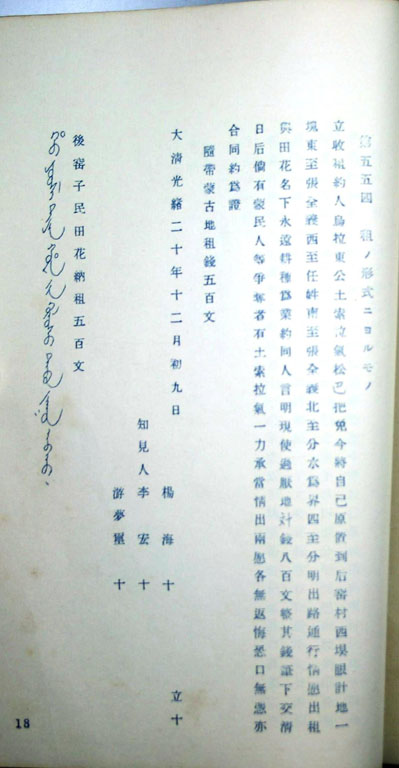 第五五図 租ノ形式ニヨルモノ
立收租約人烏拉東公土索拉氣松巴把兔今將自己原置到后窑村西堁眼計地一
塊東至張全義西至任姓南至張全義北至分水爲界四至分明出路通行情愿出租
與田花名下永遠耕種爲業約同人言明現使過厭地計錢八百文整其錢証下交清
日后倘有蒙民人等爭奪者有土索拉氣一力承當情出兩愿各無返悔恐口無憑亦
合同約爲證
隨帶蒙古地租錢五百文
大清光緒二十年十二月初九日 立十
楊海十
知見人李宏十
游夢十
後窑子民田花納租五百文
18